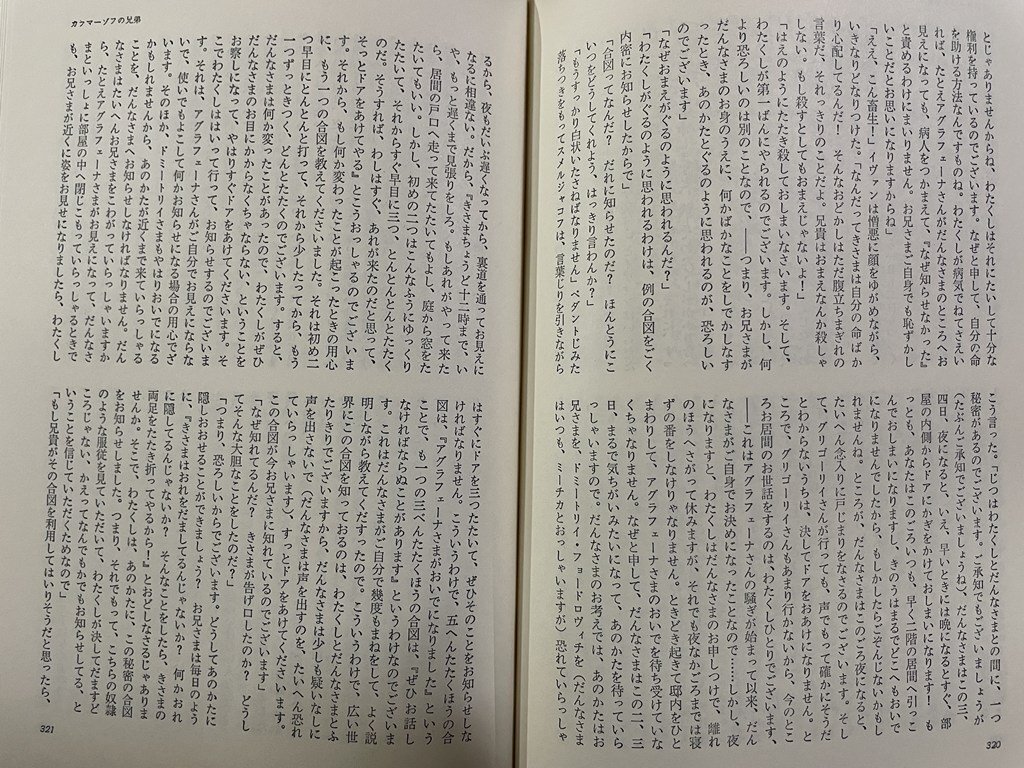 とじゃありませんからね、わたくしはそれにたいして十分な
権利を持っているのでございます。なぜと申して、自分の命
を助ける方法なんですものね。わたくしが病気でねてさえい
れば、たとえアグラフェーナさんがだんなさまのところへお
見えになっても、病人をつかまえて、『なぜ知らせなかった』
と責めるわけにまいりません。お兄さまご自身でも恥ずかし
いことだとお思いになりますからね」
「ええ、こん畜生！」イヴァンは憎悪に顔をゆがめながら、
いきなりどなりつけた。「なんだってきさまは自分の命ばか
り心配してるんだ！　そんなおどかしはただ腹立ちまぎれの
言葉だ、それっきりのことだよ。兄貴はおまえなんか殺しゃ
しない。もし殺すとしてもおまえじゃないよ！」
「はえのようにたたき殺しておしまいなさいます。そして、
わたくしが第一ばんにやられるのでございます。しかし、何
より恐ろしいのは別のことなので、――つまり、お兄さまが
だんなさまのお身のうえに、何かばかなことをしでかしなす
ったとき、あのかたとぐるのように思われるのが、恐ろしい
のでございます」
「なぜおまえがぐるのように思われるんだ？」
「わたくしがぐるのように思われるわけは、例の合図をごく
内密にお知らせしたからで」
「合図ってなんだ？　だれに知らせたのだ？　ほんとうにこ
いつをどうしてくれよう、はっきり言わんか？」
「もうすっかり白状いたさねばなりません」ペダントじみた
落ちつきをもってスメルジャコフは、言葉じりを引きながら
こう言った。「じつはわたくしとだんなさまとの間に、一つ
秘密があるのでございます。ご承知でもございましょうが
（たぶんご承知でございましょうね）、だんなさまはこの三、
四日、夜になると、いえ、早いときには晩になるとすぐ、部
屋の内側からドアにかぎをかけておしまいになります！　も
っとも、あなたはこのごろいつも、早く二階の居間へ引っこ
んでおしまいになりますし、きのうはまるでどこへもおいで
になりませんでしたから、もしかしたらご存じないかもし
れませんね。ところが、だんなさまはこのごろ夜になると、
たいへん念入りに戸じまりをなさるのでございます。そし
て、グリゴーリイさんが行っても、声でもって確かにそうだ
とわからないうちは、決してドアをおあけになりません。と
ころで、グリゴーリイさんもあまり行かないから、今のとこ
ろお居間のお世話をするのは、わたくしひとりでございます、
――これはアグラフェーナさんの騒ぎが始まって以来、だん
なさまがご自身でお決めになったことなので……しかし、夜
になりますと、わたくしはだんなさまのお申しつけで、離れ
のほうへさがって休みますが、それでも夜なかごろまでは寝
ずの番をしなけりゃなりません。ときどき起きて邸内をひと
まわりして、アグラフェーナさまのおいでを待ち受けていな
くちゃなりません。なぜと申して、だんなさまはこの二、三
日、まるで気ちがいみたいになって、あのかたを待っていら
っしゃいますので。だんなさまのお考えでは、あのかたはお
兄さまを、ドミートリイ・フョードロヴィチを（だんなさま
はいつも、ミーチカとおっしゃいますが）、恐れていらっしゃ
320
カラマーゾフの兄弟
るから、夜もだいぶ遅くなってから、裏道を通ってお見えに
なるに相違ない。だから、『きさまちょうど十二時まで、い
や、もっと遅くまで見張りをしろ。もしあれがやって来た
ら、居間の戸口へ走って来てたたいてもよし、庭から窓をた
たいてもいい。しかし、初めの二つはこんなふうにゆっくり
たたいて、それからすぐ早目に三つ、とんとんとんとたたく
のだ。そうすれば、わしはすぐ、あれが来たのだと思って、
そっとドアをあけてやる』とこうおっしゃるのでございま
す。それから、もし何か変わったことが起こったときの用心
に、もう一つの合図を教えてくださいました。それは初め二
つ早目にとんとんと打って、それから少したってから、もう
一つずっときつく、どんとたたくのでございます。すると、
だんなさまは何か変ったことがあったので、わたくしがぜひ
だんなさまのお目にかからなくちゃならない、ということを
お察しになって、やはりすぐドアをあけてくださいます。そ
こでわたくしははいって行って、お知らせするのでございま
す。それは、アグラフェーナさんがご自分でお見えにならな
いで、使いでもよこして何かお知らせになる場合の用心でご
ざいます。そのほか、ドミートリイさまもやはりおいでになる
かもしれませんから、あのかたが近くまで来ていらっしゃる
ことを、だんなさまにお知らせしなければなりません。だん
なさまはたいへんお兄さまをこわがっていらっしゃいますか
ら、たとえアグラフェーナさまがお見えになって、だんなさ
まといっしょに部屋の中へ閉じこもっていらっしゃるときで
も、お兄さまが近くに姿をお見せになりましたら、わたくし
はすぐにドアを三つたたいて、ぜひそのことをお知らせしな
ければなりません。こういうわけで、五へんたたくほうの合
図は、『アグラフェーナさまがおいでになりました』という
ことで、も一つの三べんたたくほうの合図は、『ぜひお話し
なければならぬことがあります』というわけなのでございま
す。これはだんなさまがご自分で幾度もまねをして、よく説
明しながら教えてくだすったので。こういうわけで、広い世
界にこの合図を知っておるのは、わたくしとだんなさまとふ
たりきりでございますから、だんなさまは少しも疑いなしに
声を出さないで（だんなさまは声を出すのを、たいへん恐れ
ていらっしゃいます）、すっとドアをあけてくださいます。
この合図が今お兄さまに知れているのでございます」
「なぜ知れてるんだ？　きさまが告げ口したのか？　どうし
てそんな大胆なことをしたのだ？」
「つまり、恐ろしいからでございます。どうしてあのかたに
隠しおおせることができましょう？　お兄さまは毎日のよう
に、『きさまはおれをだましてるんじゃないか？　何かおれ
に隠してるんじゃないか？　そんなことをしたら、きさまの
両足をたたき折ってやるから！』とおどしなさるじゃありま
せんか。そこで、わたくしは、あのかたに、この秘密の合図
をお知らせしました。つまり、それでもって、こちらの奴隷
のような服従を見ていただいて、わたくしが決してだますど
ころじゃない、かえってなんでもかでもお知らせしてる、と
いうことを信じていただくためなので」
「もし兄貴がその合図を利用してはいりそうだと思ったら、
321